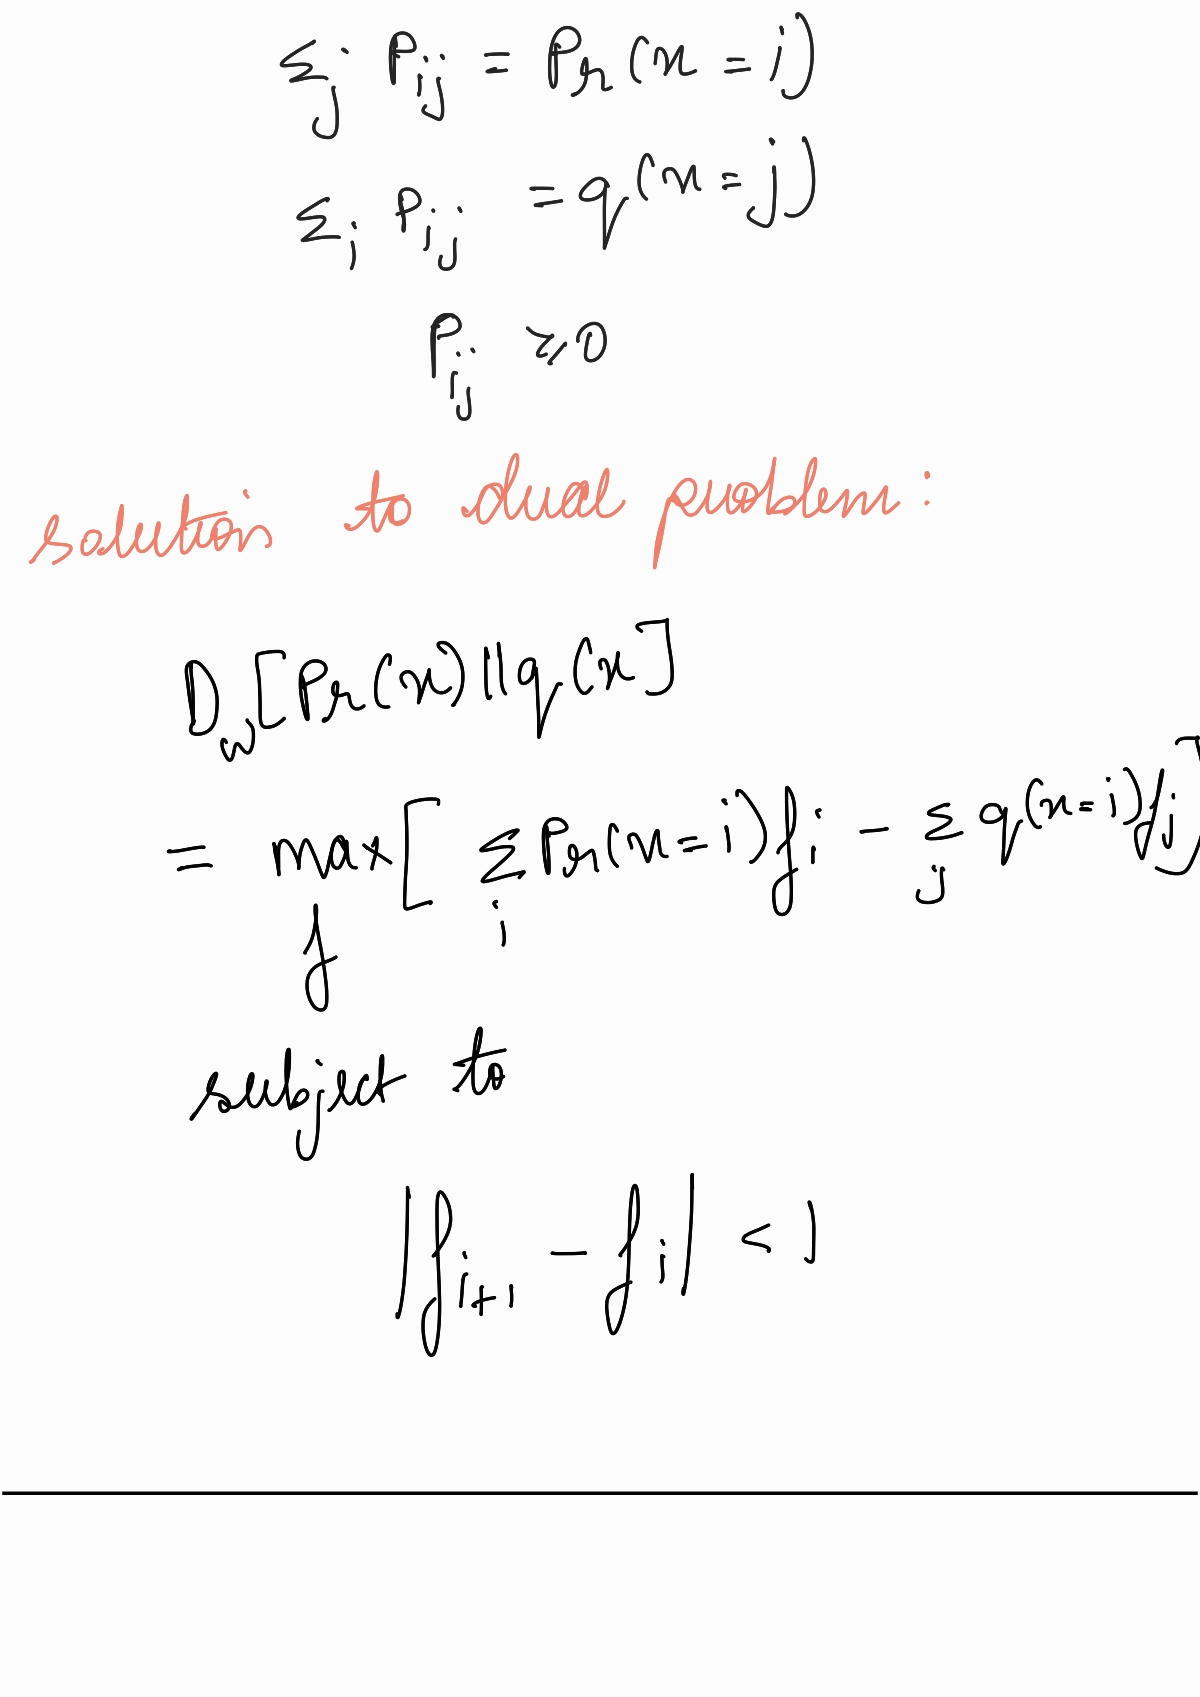 Σ_j P_ij = Pr(x = i)
Σ_i P_ij = q(x = j)
P_ij ⩾ 0
solution to dual problem:
D_w [Pr(x) || q(x]
= max_f [ Σ_i Pr(x = i) f_i − Σ_j q(x = i) f_j ]
subject to
|f_i+1 − f_i| < 1